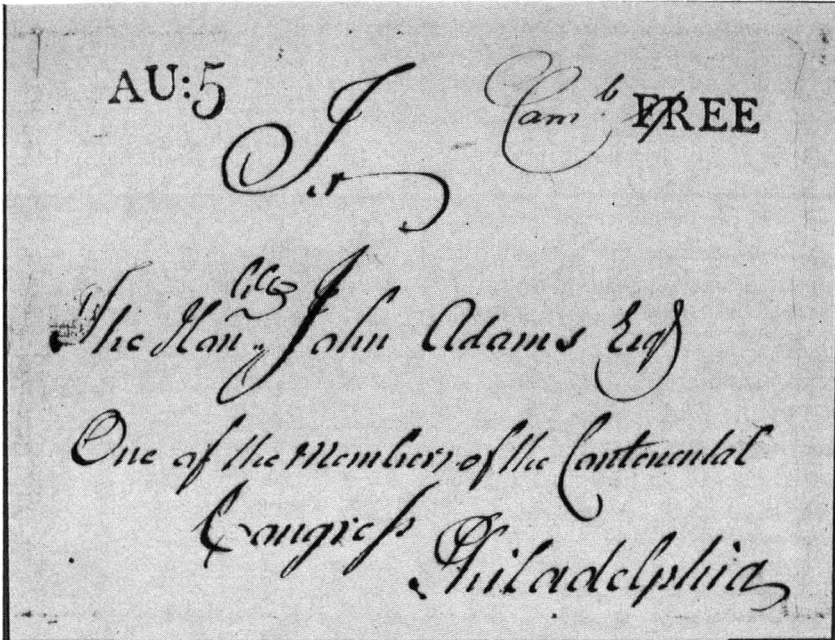 AU:5 Camb FREE
To
The Honble John Adams Esq
One of the Members of the Continental
Congress
Philadelphia